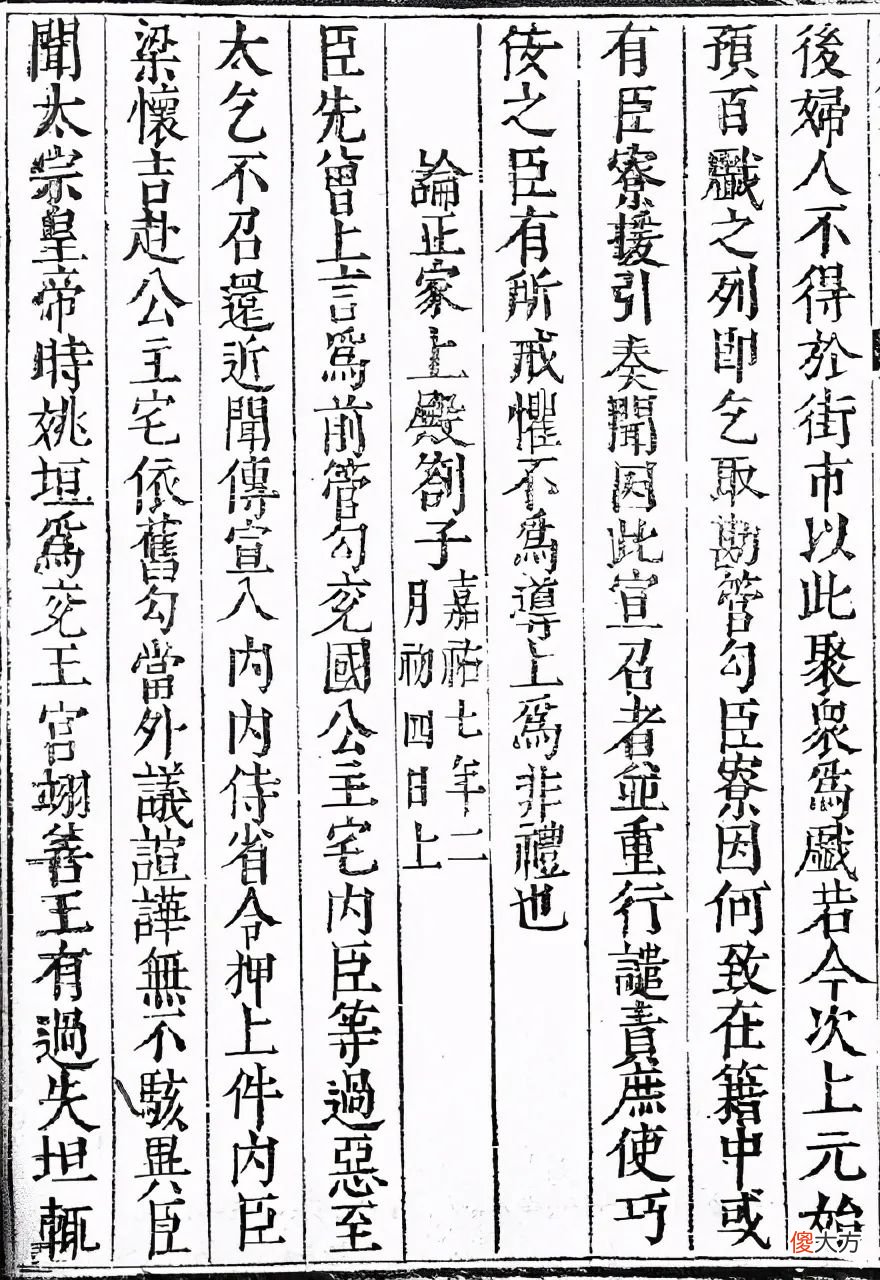 後婦人不得於街市以此聚衆爲戲若今次上元始
預百戲之列即乞取勘管勾臣寮因何致在籍中或
有臣寮援引奏聞因此宣召者並重行譴責庶使巧
佞之臣有所戒懼不爲導上爲非禮也
論正家上殿劄子嘉祐七年二
月初四日上
臣先曾上言爲前管勾兖國公主宅内臣等過惡至
太乞不召還近聞傳宣入内内侍省令押上件内臣
梁懷吉赴公主宅依舊勾當外議諠譁無不駭異臣
聞太宗皇帝時姚坦爲兖王宫翊善王有過失坦輒
傻大方